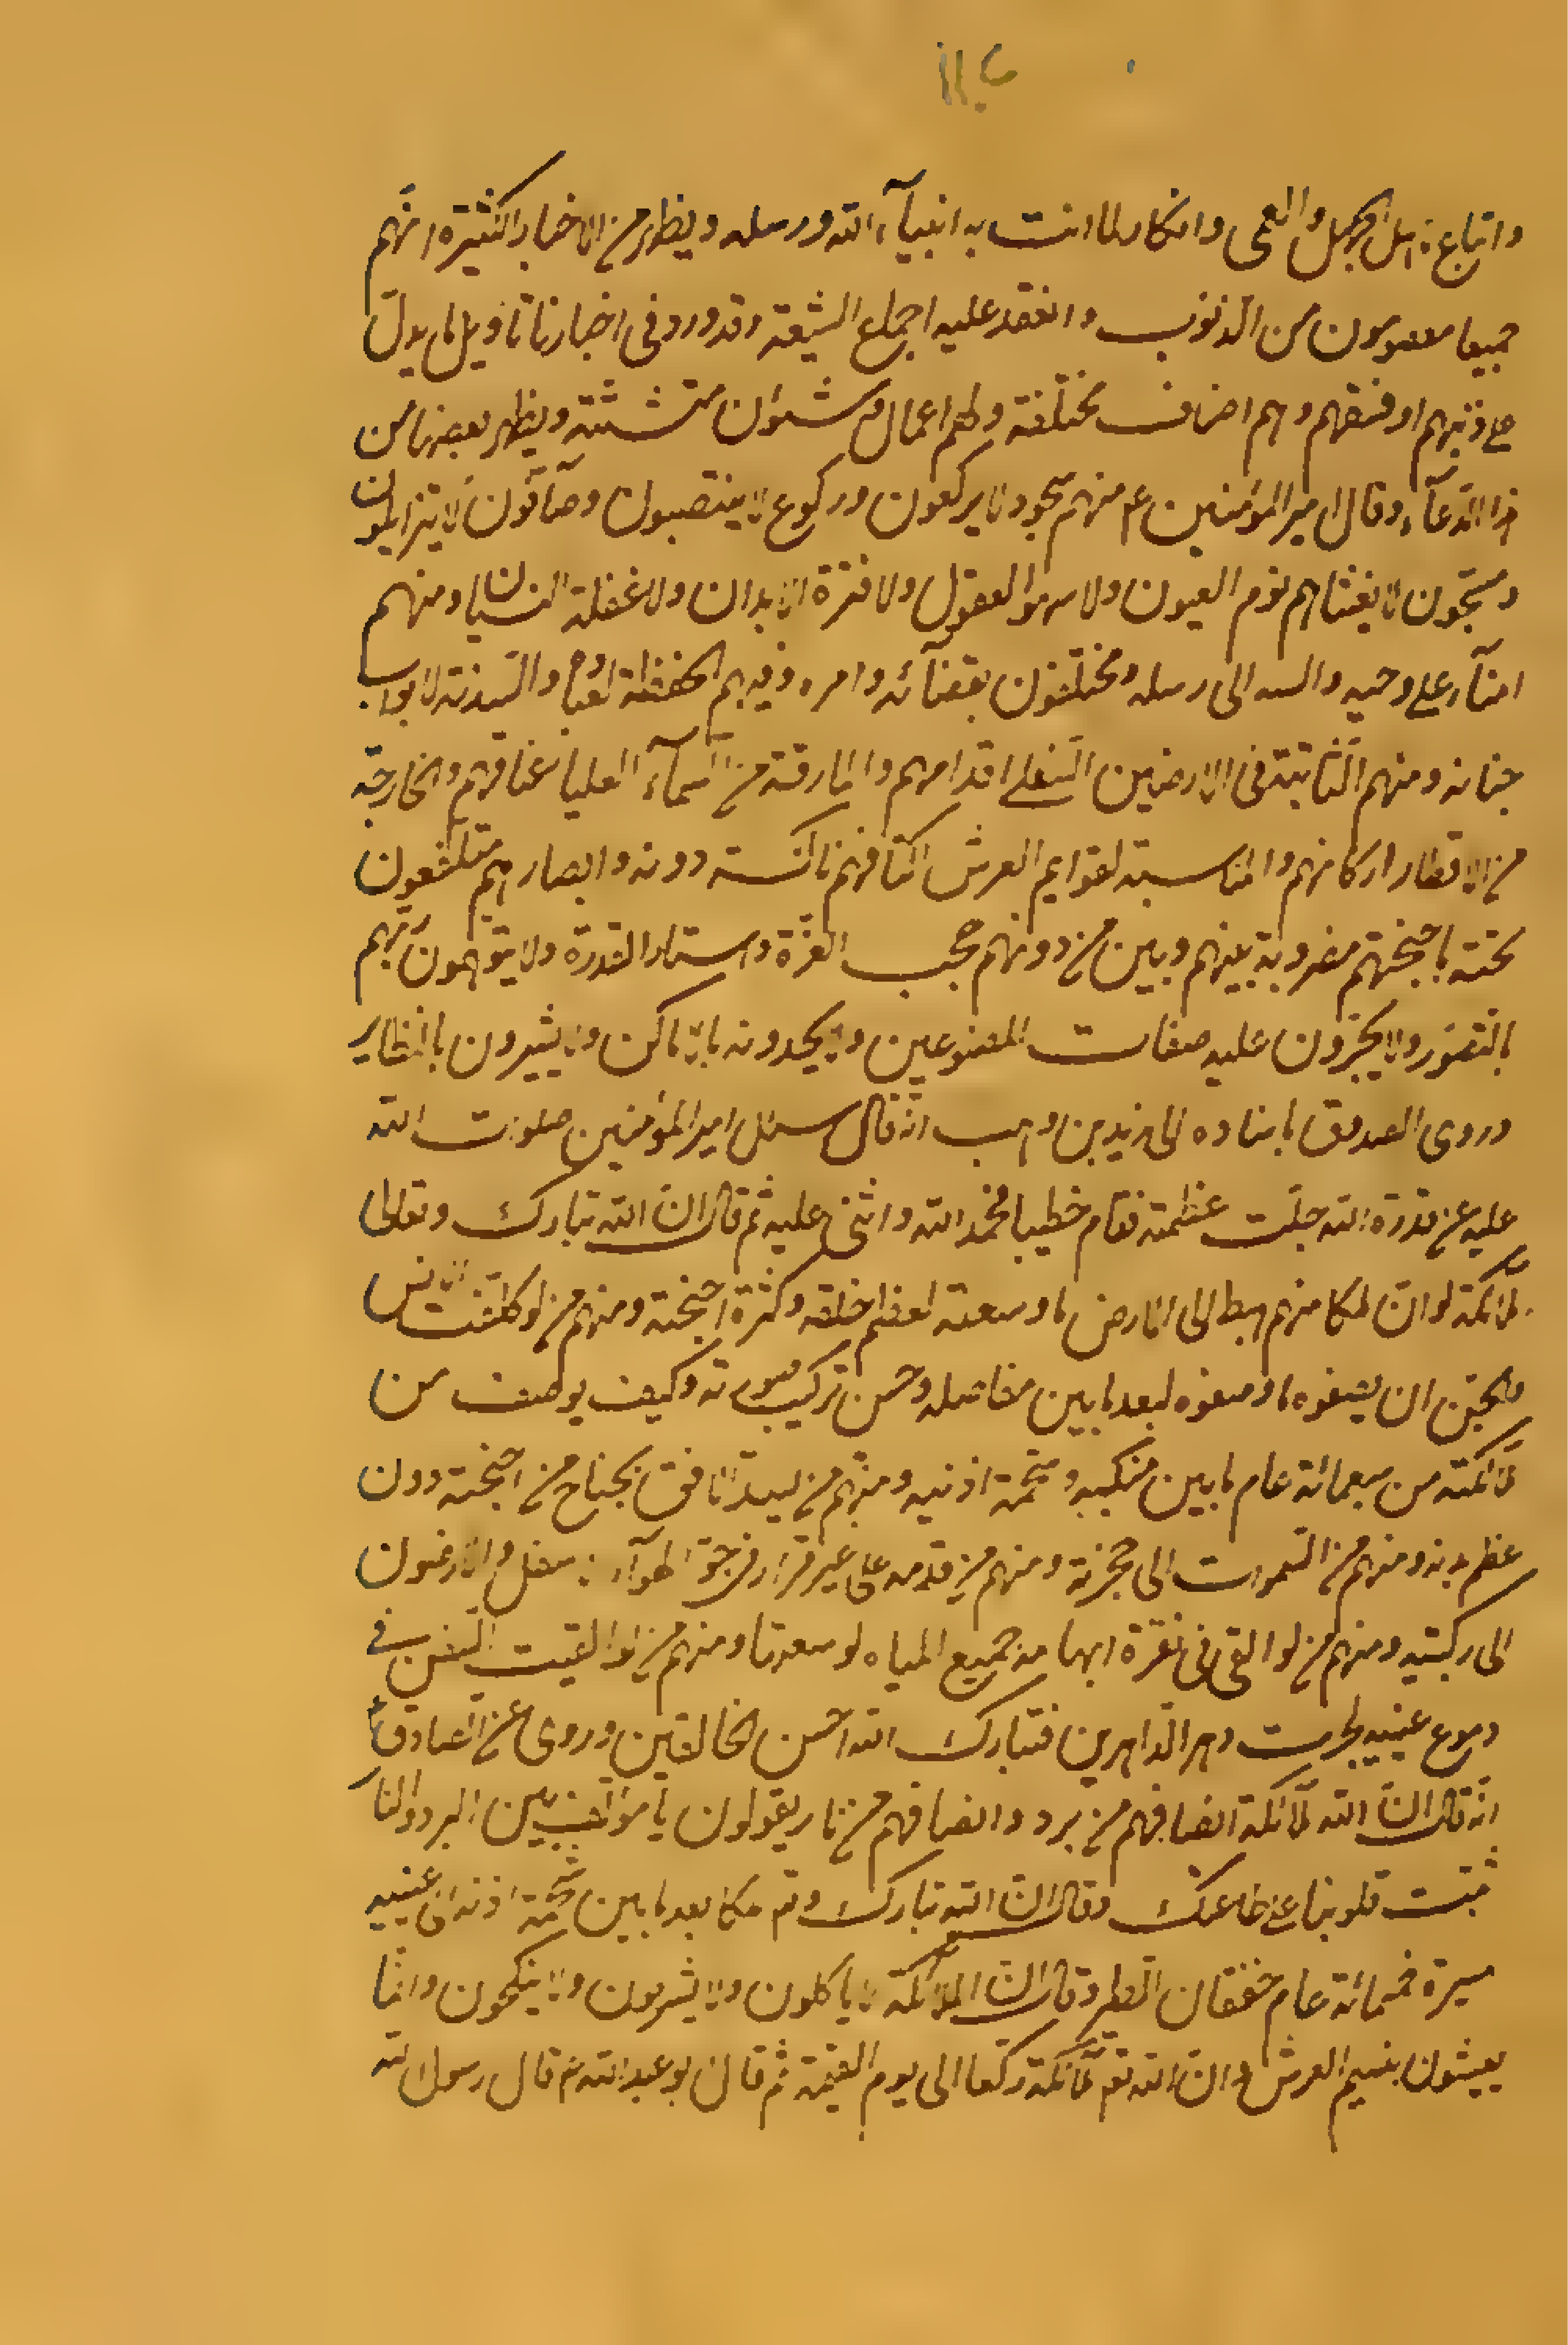 واتباع اهل الجهل والعمى وانكار لما اتت به انبيآء الله ورسله ويظهر من الاخبار الكثيرة انهم
جميعا معصومون من الذنوب وانعقد عليه اجماع الشيعة وقد ورد في اخبارنا تأويل ما يدل
على ذنبهم او فسقهم وهم اصناف مختلفة ولهم اعمال وشئون متشتتة ويظهر بعضها من
هذا الدعآء وقال امير المؤمنين ع منهم سجود لا يركعون وركوع لا ينتصبون وصآفون لا يتزايلون
ومسبحون لا يغشاهم نوم العيون ولا سهو العقول ولا فترة الابدان ولا غفلة النسيان ومنهم
امنآء على وحيه والسنة الى رسله ومختلفون بقضآئه وامره وفيهم الحفظة لعباده والسدنة لابواب
جنانه ومنهم الثابتة في الارضين السفلى اقدامهم والمارقة من السمآء العليا اعناقهم والخارجة
من الاقطار اركانهم والمناسبة لقوايم العرش اكتافهم ناكسة دونه وابصارهم متلفعون
تحته باجنحتهم مضروبة بينهم وبين من دونهم حجب العزة واستار القدرة ولا يتوهمون ربهم
بالتصور ولا يجرون عليه صفات المصنوعين ولا يحدونه بالاماكن ولا يشيرون بالنظاير
وروى الصدوق باسناده الى زيد بن وهب انه قال سئل امير المؤمنين صلوات الله
عليه عن قدرة الله جلت عظمته فقام خطيبا فحمد الله واثنى عليه ثم قال ان الله تبارك وتعالى
ملآئكة لو ان ملكا منهم هبط الى الارض ما وسعته لعظم خلقه وكثرة اجنحته ومنهم من لو كلفت الانس
والجن ان يصفوه ما وصفوه لبعد ما بين مفاصله وحسن تركيب صورته وكيف يوصف من
ملآئكته من سبعمائة عام ما بين منكبيه وشحمة اذنيه ومنهم من يسد الافق بجناح من اجنحته دون
عظم بدنه ومنهم من السموات الى حجزته ومنهم من قدمه على غير قرار في جو الهوآء الاسفل والارضون
الى ركبتيه ومنهم من لو القى في نقرة ابهامه جميع المياه لوسعتها ومنهم من لو القيت السفن في
دموع عينيه لجرت دهر الداهرين فتبارك الله احسن الخالقين وروى عن الصادق ع
انه قال ان الله ملآئكة انصافهم من برد وانصافهم من نار يقولون يا مؤلفا بين البرد والنار
ثبت قلوبنا على طاعتك وقال ان الله تبارك وتع ملكا بعد ما بين شحمة اذنه الى عينيه
مسيرة خمسمائة عام خفقان الطير وقال ان الملآئكة لا ياكلون ولا يشربون ولا ينكحون وانما
يعيشون بنسيم العرش وان الله تع ملآئكة ركعا الى يوم القيمة ثم قال ابو عبد الله ع قال رسول الله